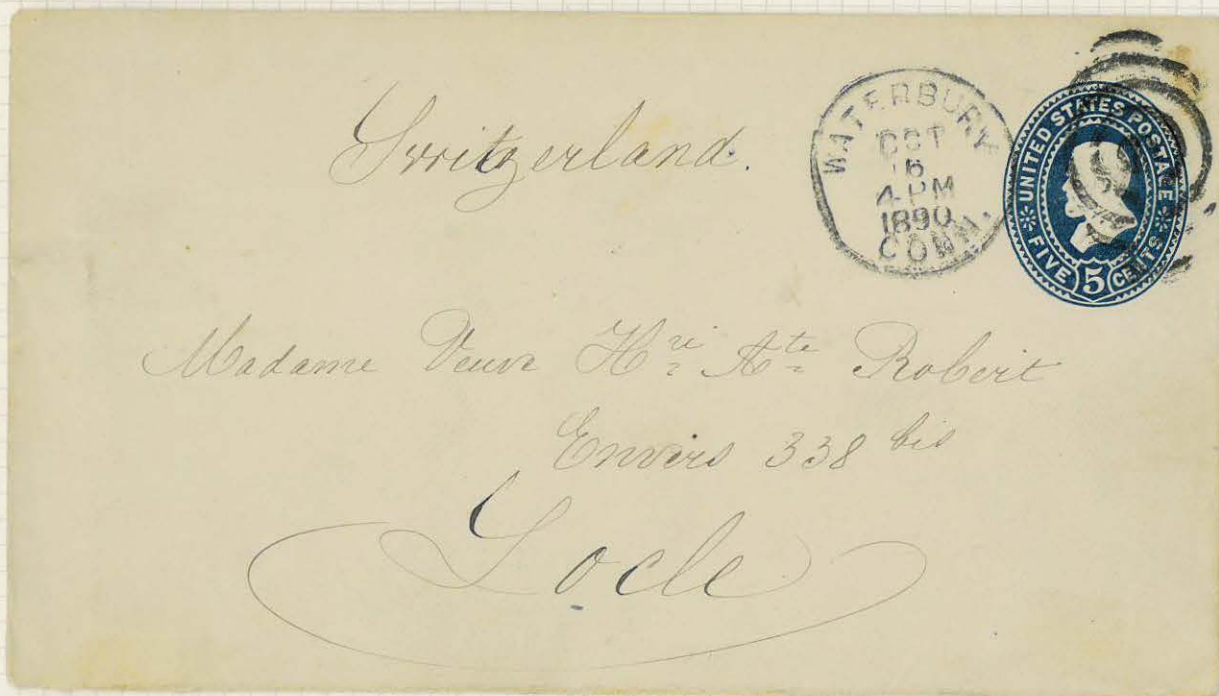 Switzerland.
WATERBURY
OCT
16
4 PM
1890
CONN.
UNITED STATES POSTAGE
FIVE 5 CENTS
Madame Veuve Hri Ate Robert
Envers 338 bis
Locle